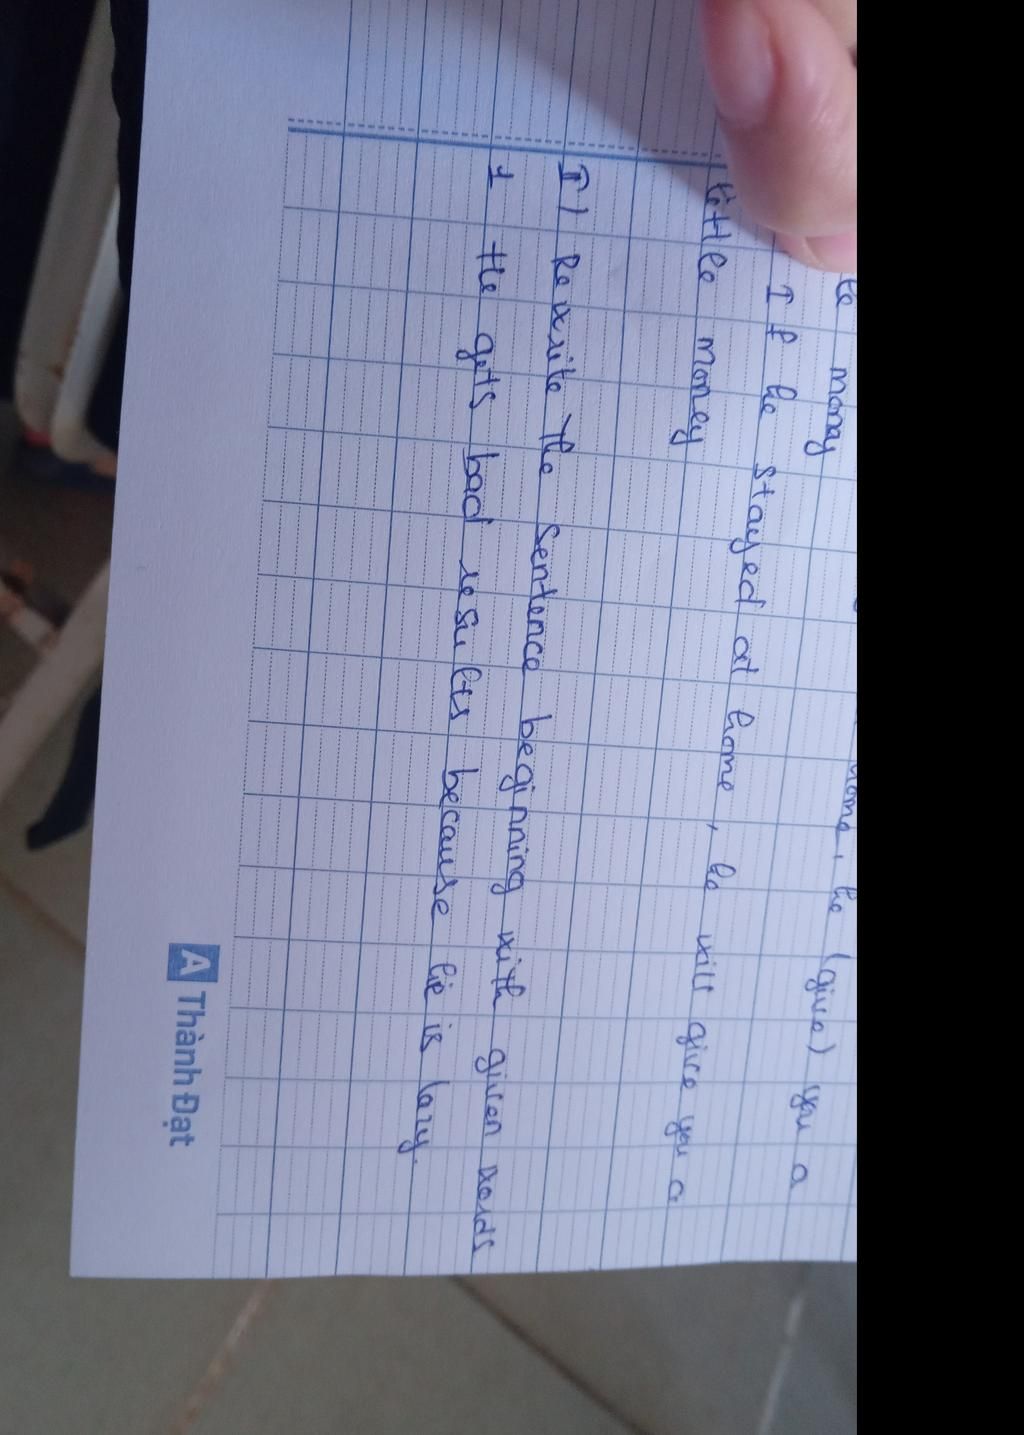 te money
home, he (give) you a
If he stayed at home, he will give you a
little money
I) Rewrite the sentence beginning with given words
1 He gets bad results because he is lazy.
A Thành Đạt